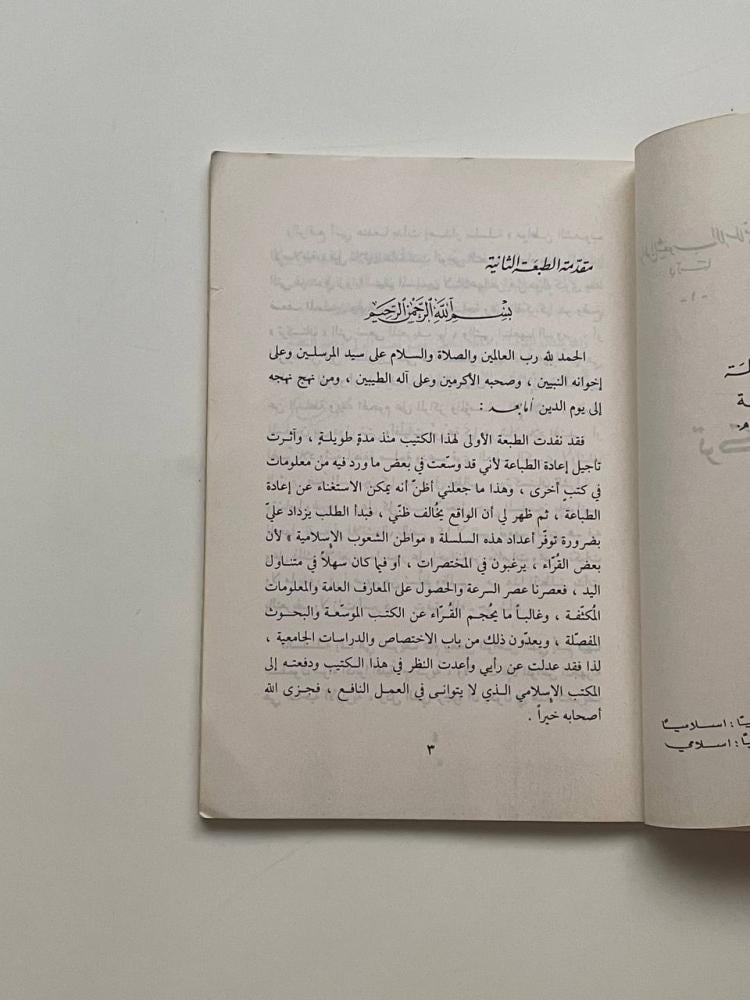 مقدمة الطبعة الثانية
بسم الله الرحمن الرحيم
الحمد لله رب العالمين والصلاة والسلام على سيد المرسلين وعلى
إخوانه النبيين ، وصحبه الأكرمين وعلى آله الطيبين ، ومن نهج نهجه
إلى يوم الدين أما بعد :
فقد نفدت الطبعة الأولى لهذا الكتيب منذ مدةٍ طويلةٍ ، وآثرت
تأجيل إعادة الطباعة لأني قد وسّعت في بعض ما ورد فيه من معلومات
في كتبٍ أخرى ، وهذا ما جعلني أظنّ أنه يمكن الاستغناء عن إعادة
الطباعة ، ثم ظهر لي أن الواقع يخُالف ظنّي ، فبدأ الطلب يزداد عليّ
بضرورة توفّر أعداد هذه السلسلة « مواطن الشعوب الإسلامية » لأن
بعض القُرّاء ، يرغبون في المختصرات ، أو فيما كان سهلاً في متناول
اليد ، فعصرنا عصر السرعة والحصول على المعارف العامة والمعلومات
المُكثّفة ، وغالباً ما يُحجم القُرّاء عن الكتب الموسّعة والبحوث
المفصّلة ، ويعدّون ذلك من باب الاختصاص والدراسات الجامعية ،
لذا فقد عدلت عن رأيي وأعدت النظر في هذا الكتيب ودفعته إلى
المكتب الإسلامي الذي لا يتوانى في العمل النافع ، فجزى الله
أصحابه خيراً .
٣
اسلاميًا
اسلامي